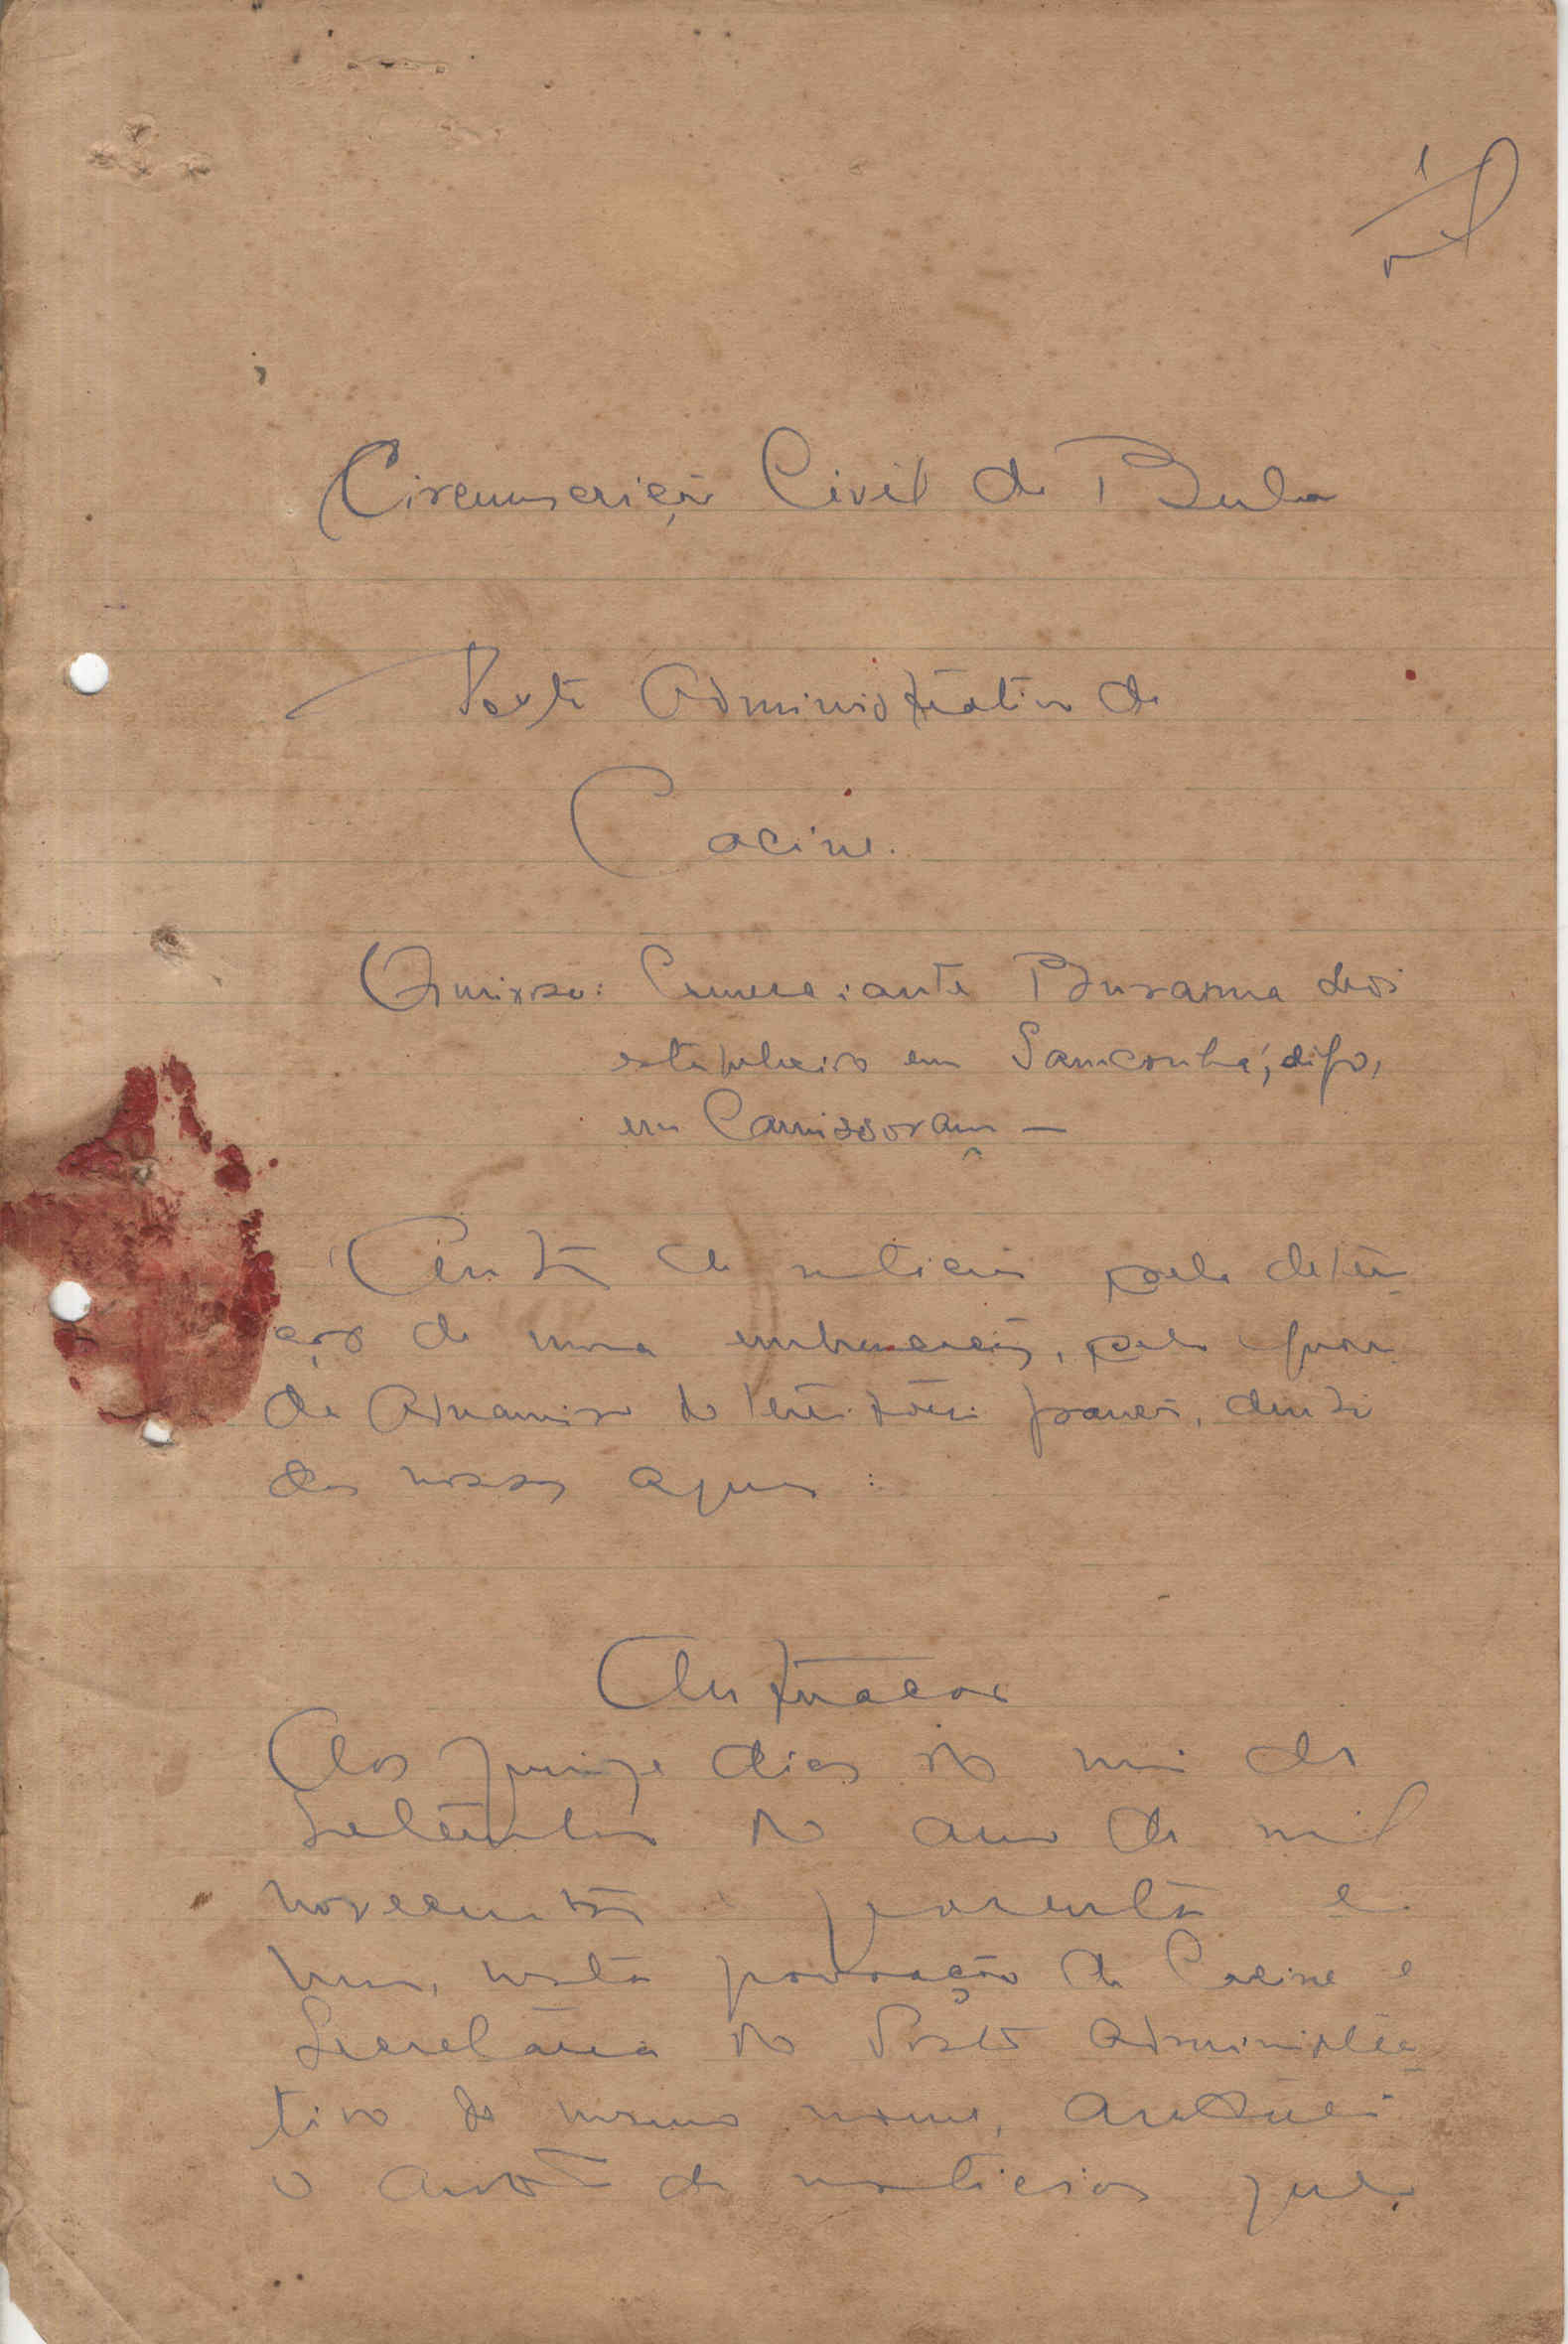 1
Circunscrição Civil de Buba
Posto Administrativo de
Cacine.
Comerciante
estabelecido em Sanconhá, digo,
em Camissoram —
Auto de noticia pela deten-
ção de uma embarcação, pelo guar
da Aduaneiro do território francês, dentro
das nossas aguas:
Autuacão
Aos quinze dias do mês de
Setembro do ano de mil
novecentos quarenta e
um, nesta povoação de Cacine e
Secretaria do Posto Administra-
tivo do mesmo nome, autuei
o auto de noticias que